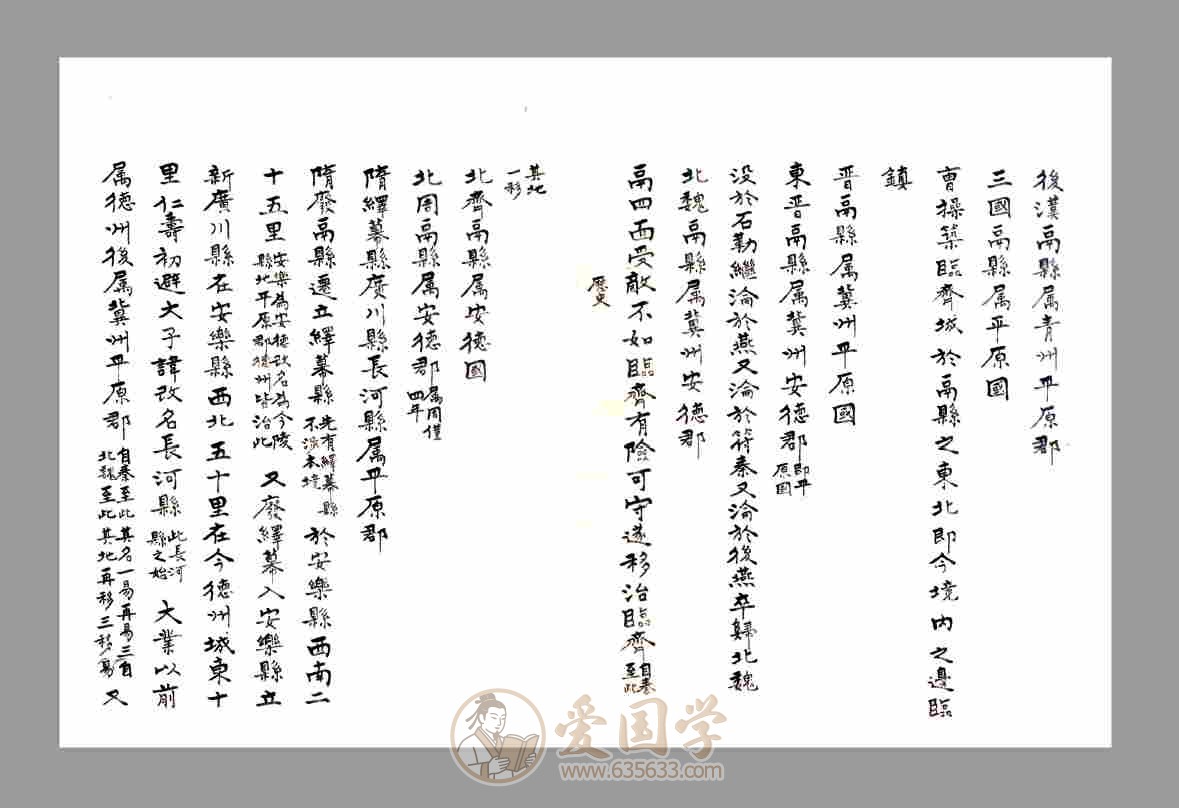 後漢鬲縣属青州平原郡
三國鬲縣属平原國
曹操築臨齊城於鬲縣之東北即今境内之邊臨
鎮
晋鬲縣属冀州平原國
東晋鬲縣属冀州安德郡即平原國
没於石勒繼淪於燕又淪於符秦又淪於後燕卒歸北魏
北魏鬲縣属冀州安德郡
鬲四面受敵不如臨齊有險可守遂移治臨齊自秦至此
歷史
其地一移
北齊鬲縣属安德國
北周鬲縣属安德郡属周僅四年
隋繹幕縣廣川縣長河縣属平原郡
隋廢鬲縣遷立繹幕縣先有繹幕縣不涉本境於安樂縣西南二
十五里安樂為安德改名為今陵縣地平原郡德州皆治此又廢繹幕入安樂縣立
新廣川縣在安樂縣西北五十里在今德州城東十
里仁壽初避太子諱改名長河縣此長河縣之始大業以前
属德州後属冀州平原郡自秦至此其名一易再易三易自北魏至此其地再移三移又
爱国学
www.635633.com